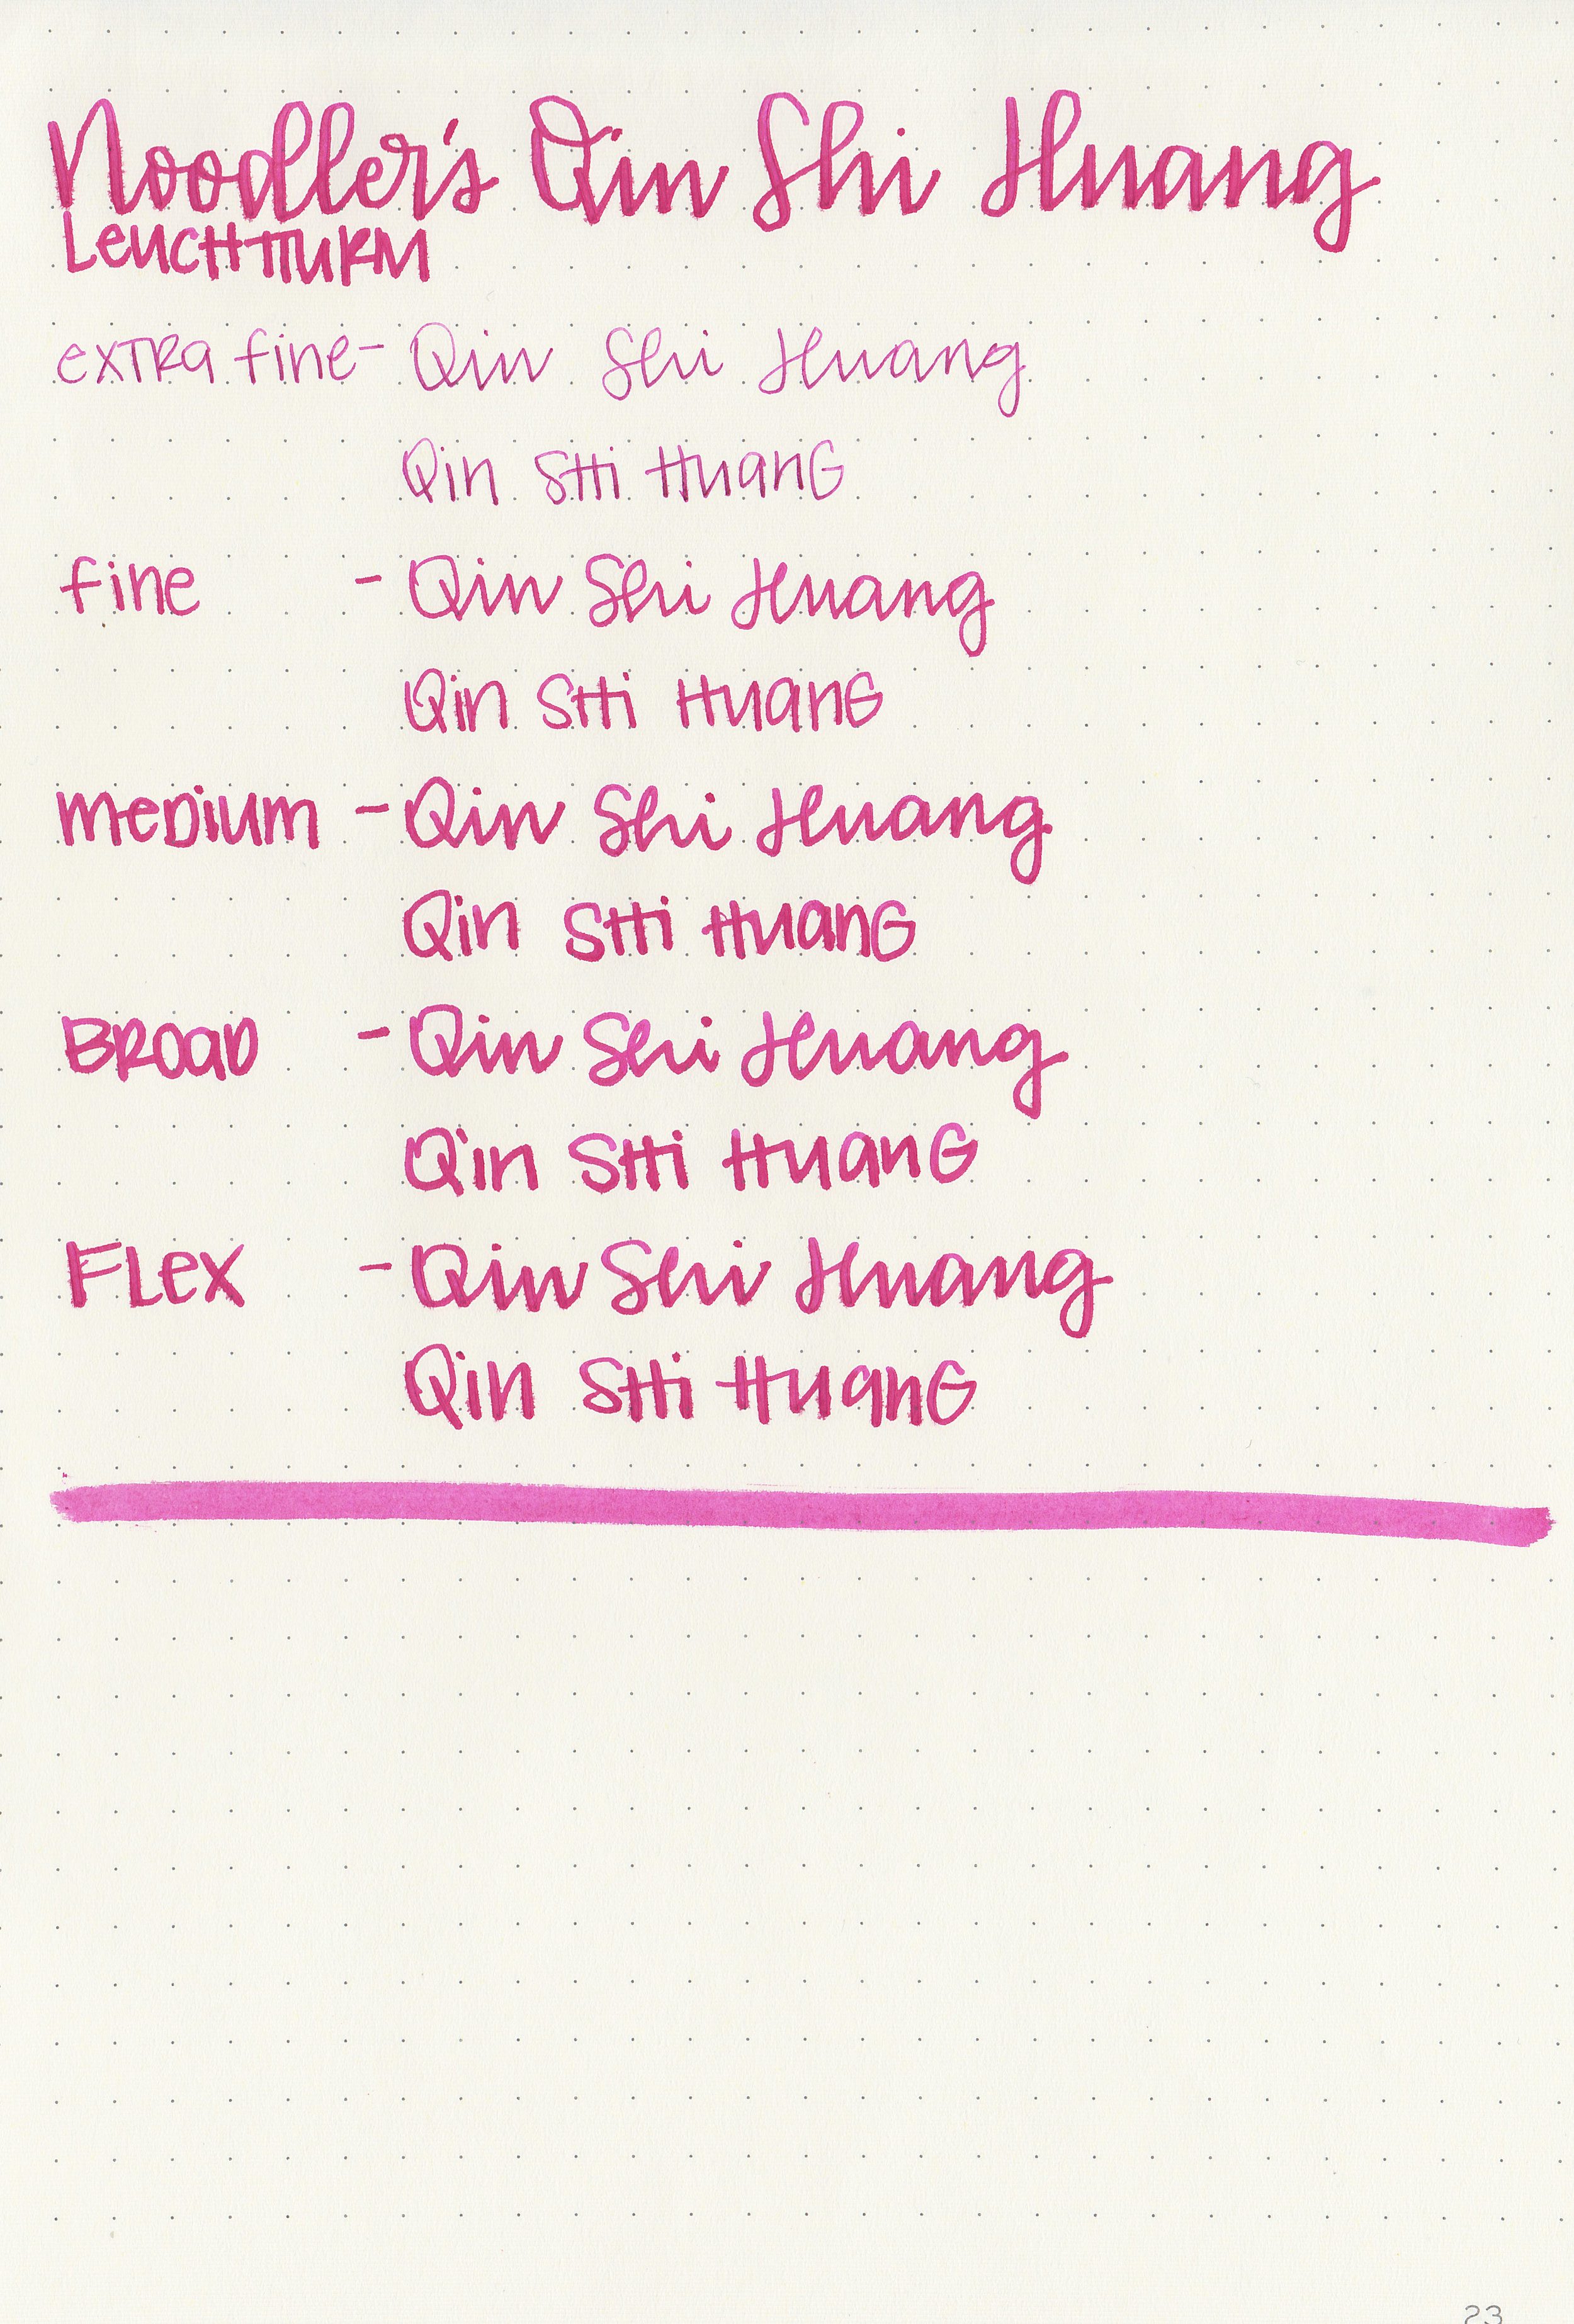 Noodler's Qin Shi Huang
Leuchtturm
extra fine - Qin Shi Huang
Qin Shi Huang
fine - Qin Shi Huang
Qin Shi Huang
medium - Qin Shi Huang
Qin Shi Huang
Broad - Qin Shi Huang
Qin Shi Huang
Flex - Qin Shi Huang
Qin Shi Huang
23